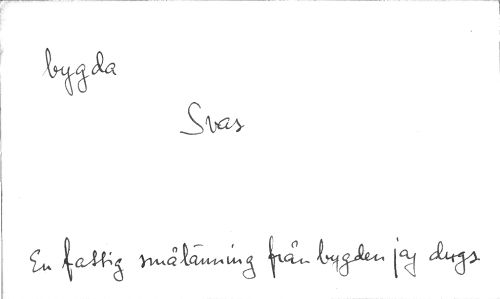 bygda
Svas
En fattig smålänning från bygden jag